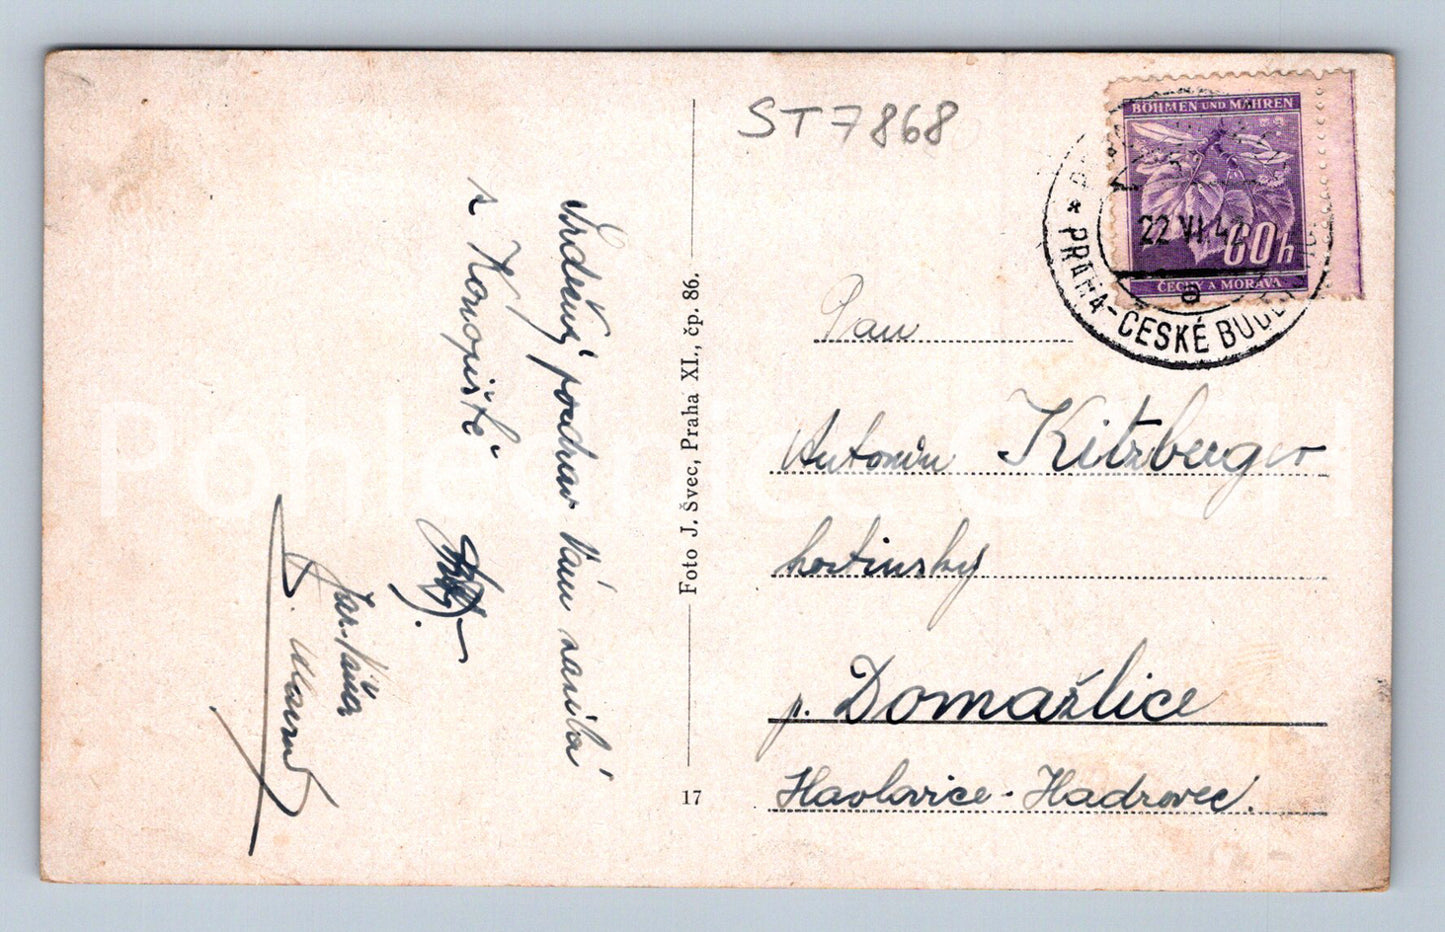 ST7868
BÖHMEN UND MÄHREN
60 h
ČECHY A MORAVA
22 VI 42
* PRAHA-ČESKÉ BUDĚ
Srdečný pozdrav Vám zasílá
z Konopiště
Jar. Váňa
Foto J. Švec, Praha XI., čp. 86.
17
Pan
Antonín Kitzberger
hostinský
p. Domažlice
Havlovice - Hadrovec.
Pohlednice CASH